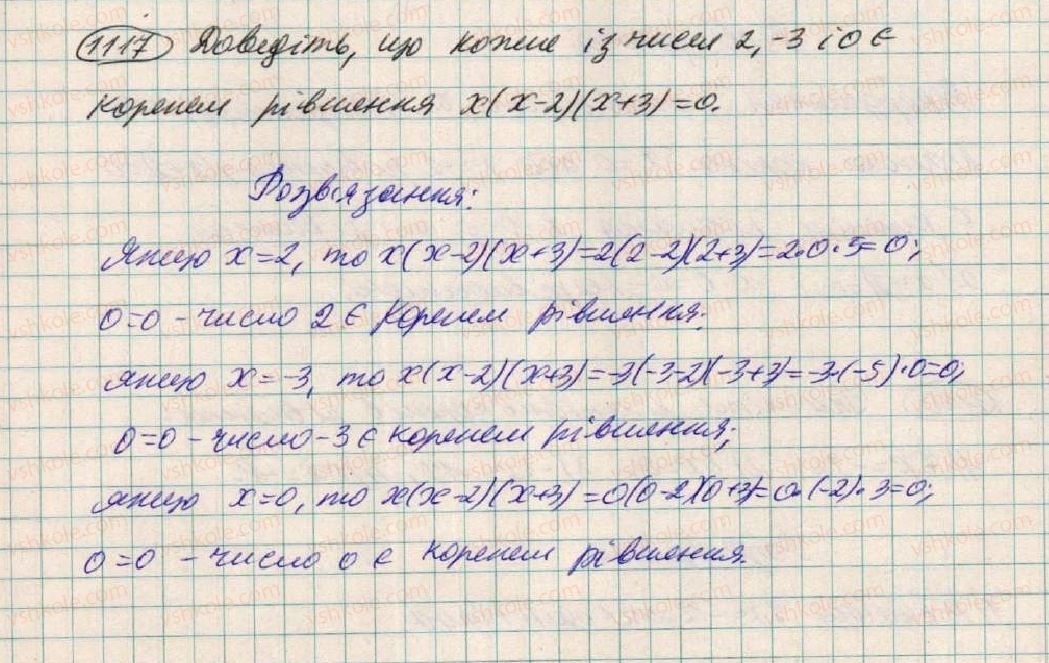 1117 Доведіть, що кожне із чисел 2, -3 і 0 є
коренем рівняння x(x-2)(x+3)=0.
Розв'язання:
Якщо x=2, то x(x-2)(x+3)=2(2-2)(2+3)=2·0·5=0;
0=0 - число 2 є коренем рівняння.
якщо x=-3, то x(x-2)(x+3)=-3(-3-2)(-3+3)=-3·(-5)·0=0;
0=0 - число -3 є коренем рівняння;
якщо x=0, то x(x-2)(x+3)=0(0-2)(0+3)=0·(-2)·3=0;
0=0 - число 0 є коренем рівняння.